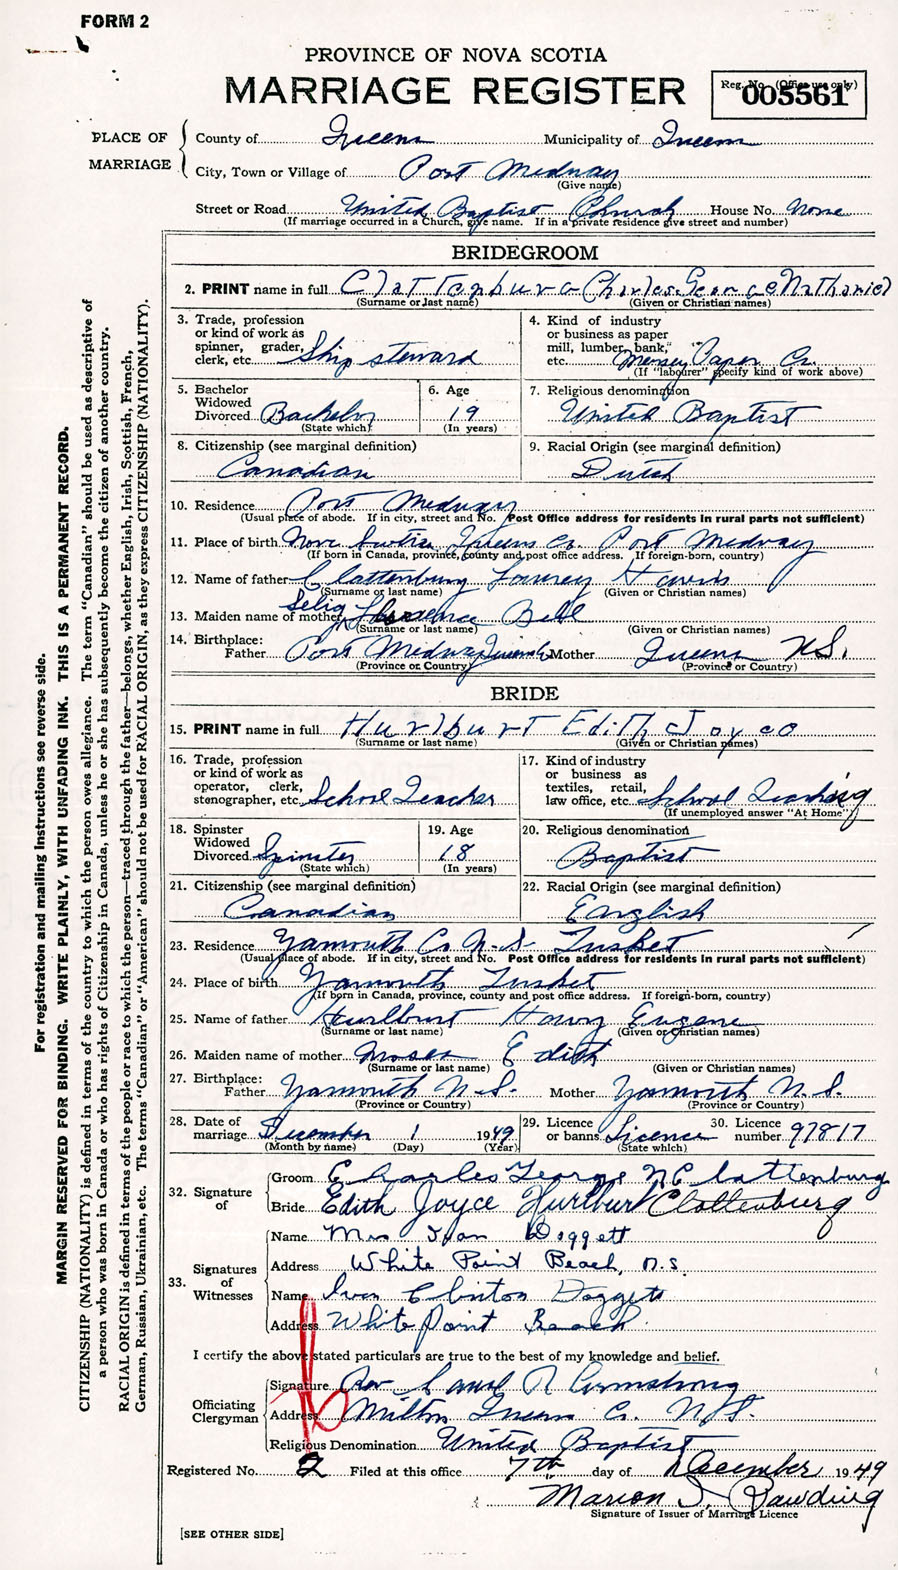 FORM 2
PROVINCE OF NOVA SCOTIA
MARRIAGE REGISTER
Reg. No. (Office use only)
005561
PLACE OF MARRIAGE
County of Queens Municipality of Queens
City, Town or Village of Port Medway
(Give name)
Street or Road United Baptist Church House No. None
(If marriage occurred in a Church, give name. If in a private residence give street and number)
BRIDEGROOM
2. PRINT name in full Clattenburg Charles George Nathaniel
(Surname or last name) (Given or Christian names)
3. Trade, profession or kind of work as spinner, grader, clerk, etc. Ship steward
4. Kind of industry or business as paper mill, lumber, bank, etc. Mersey Paper Co.
(If "labourer" specify kind of work above)
5. Bachelor Widowed Divorced Bachelor
(State which)
6. Age 19
(In years)
7. Religious denomination United Baptist
8. Citizenship (see marginal definition) Canadian
9. Racial Origin (see marginal definition) Dutch
10. Residence Port Medway
(Usual place of abode. If in city, street and No. Post Office address for residents in rural parts not sufficient)
11. Place of birth Nova Scotia Queens Co. Port Medway
(If born in Canada, province, county and post office address. If foreign-born, country)
12. Name of father Clattenburg
(Surname or last name) (Given or Christian names)
13. Maiden name of mother Selig Florence Bell
(Surname or last name) (Given or Christian names)
14. Birthplace:
Father Port Medway Mother Queens N.S.
(Province or Country) (Province or Country)
BRIDE
15. PRINT name in full Hurlburt Edith Joyce
(Surname or last name) (Given or Christian names)
16. Trade, profession or kind of work as operator, clerk, stenographer, etc. School Teacher
17. Kind of industry or business as textiles, retail, law office, etc. School Teaching
(If unemployed answer "At Home")
18. Spinster Widowed Divorced Spinster
(State which)
19. Age 18
(In years)
20. Religious denomination Baptist
21. Citizenship (see marginal definition) Canadian
22. Racial Origin (see marginal definition) English
23. Residence Yarmouth Co. N.S. Tusket
(Usual place of abode. If in city, street and No. Post Office address for residents in rural parts not sufficient)
24. Place of birth Yarmouth Tusket
(If born in Canada, province, county and post office address. If foreign-born, country)
25. Name of father Hurlburt Eugene
(Surname or last name) (Given or Christian names)
26. Maiden name of mother Moses Edith
(Surname or last name) (Given or Christian names)
27. Birthplace:
Father Yarmouth N.S. Mother Yarmouth N.S.
(Province or Country) (Province or Country)
28. Date of marriage December 1 1949
(Month by name) (Day) (Year)
29. Licence or banns Licence
(State which)
30. Licence number 97817
32. Signature of
Groom Charles George N Clattenburg
Bride Edith Joyce Hurlburt Clattenburg
33. Signatures of Witnesses
Name Mrs Ivan Doggett
Address White Point Beach, N.S.
Name Ivan Clinton Doggett
Address White Point Beach
I certify the above stated particulars are true to the best of my knowledge and belief.
Officiating Clergyman
Signature Rev R Armstrong
Address Milton Queens Co. N.S.
Religious Denomination United Baptist
Registered No. 2 Filed at this office 7th day of December 1949
Marion Rawding
Signature of Issuer of Marriage Licence
[SEE OTHER SIDE]
For registration and mailing instructions see reverse side.
MARGIN RESERVED FOR BINDING. WRITE PLAINLY, WITH UNFADING INK. THIS IS A PERMANENT RECORD.
CITIZENSHIP (NATIONALITY) is defined in terms of the country to which the person owes allegiance. The term "Canadian" should be used as descriptive of
a person who was born in Canada or who has rights of Citizenship in Canada, unless he or she has subsequently become the citizen of another country.
RACIAL ORIGIN is defined in terms of the people or race to which the person—traced through the father—belongs, whether English, Irish, Scottish, French,
German, Russian, Ukrainian, etc. The terms "Canadian" or "American" should not be used for RACIAL ORIGIN, as they express CITIZENSHIP (NATIONALITY).